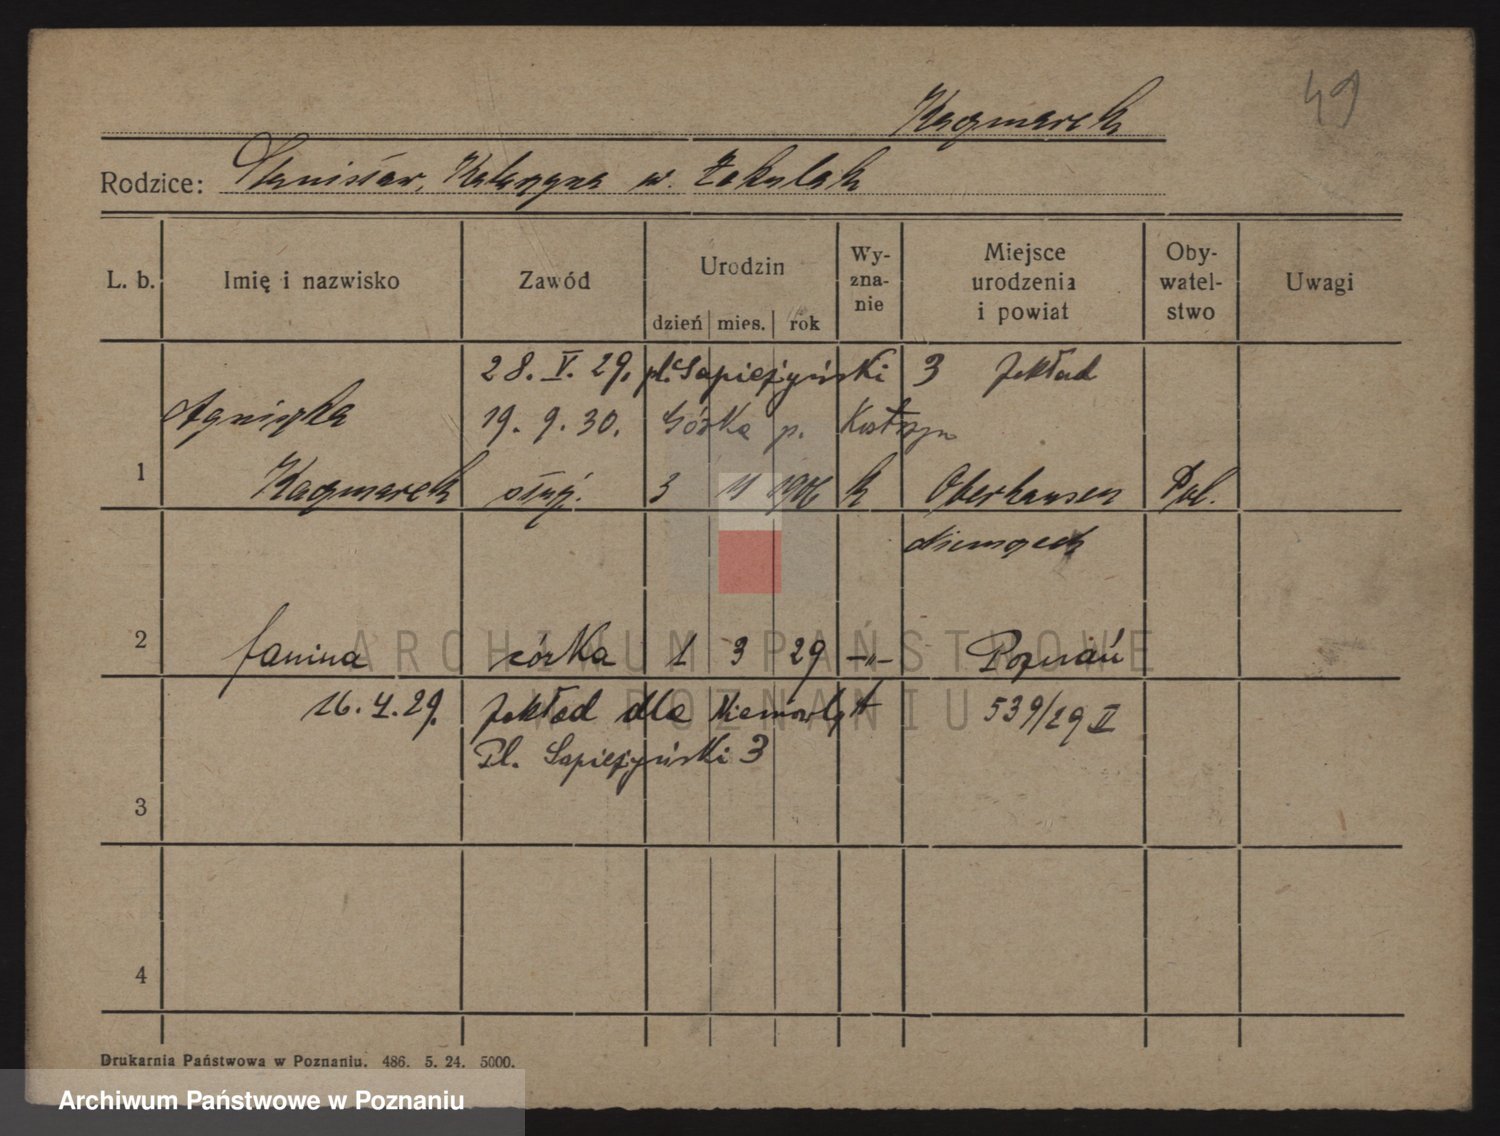 49
Kaczmarek
Rodzice: Stanisław, Katarzyna w. Łakulak
L. b. Imię i nazwisko Zawód Urodzin dzień mies. rok Wy-zna-nie Miejsce urodzenia i powiat Oby-watel-stwo Uwagi
28. V. 29. pl. Sapieżyński 3 Zakład
Agnieszka 19. 9. 30. Górka p. Kostrzyn
1 Kaczmarek służ. 3 11 1906 k Oberhausen Pol.
Niemczech
2 Janina córka 1 3 29 -"- Poznań
16. 4. 29. Zakład dla Niemowląt 539/29 II
Pl. Sapieżyński 3
3
4
Drukarnia Państwowa w Poznaniu. 486. 5. 24. 5000.
ARCHIWUM PAŃSTWOWE
W POZNANIU
Archiwum Państwowe w Poznaniu